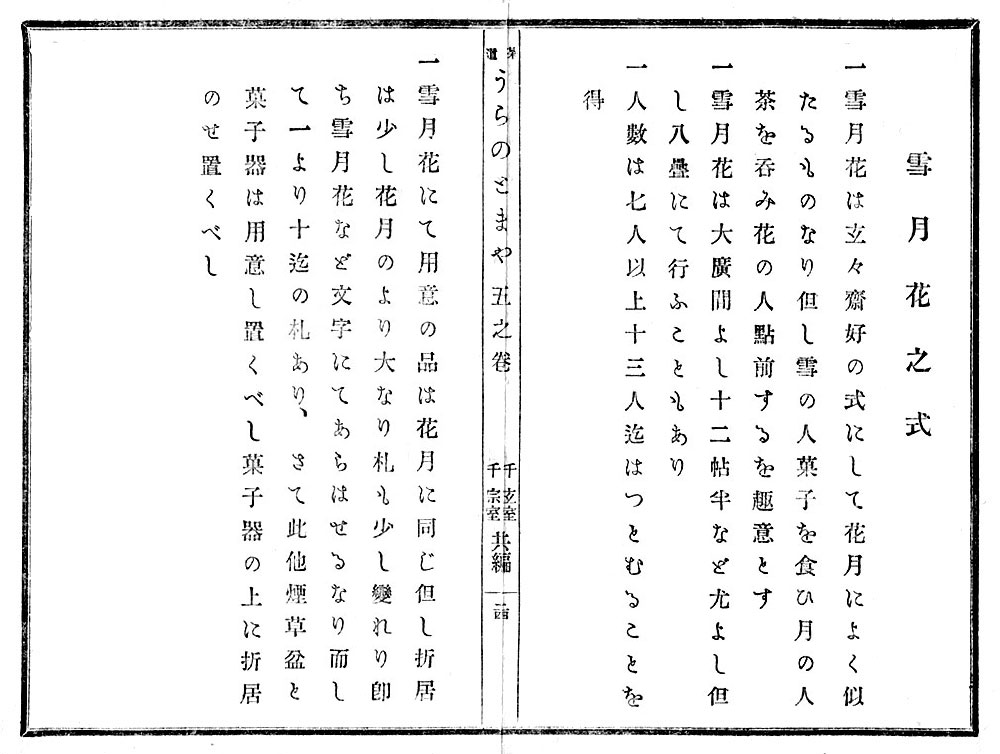 雪月花之式
一雪月花は玄々齋好の式にして花月によく似
たるものなり但し雪の人菓子を食ひ月の人
茶を呑み花の人點前するを趣意とす
一雪月花は大廣間よし十二帖半など尤よし但
し八疊にて行ふこともあり
一人數は七人以上十三人迄はつとむることを
得
うらのとまや 五之卷
千玄室
千宗室
共編
一雪月花にて用意の品は花月に同じ但し折居
は少し花月のより大なり札も少し變れり卽
ち雪月花など文字にてあらはせるなり而し
て一より十迄の札あり、さて此他煙草盆と
菓子器は用意し置くべし菓子器の上に折居
のせ置くべし